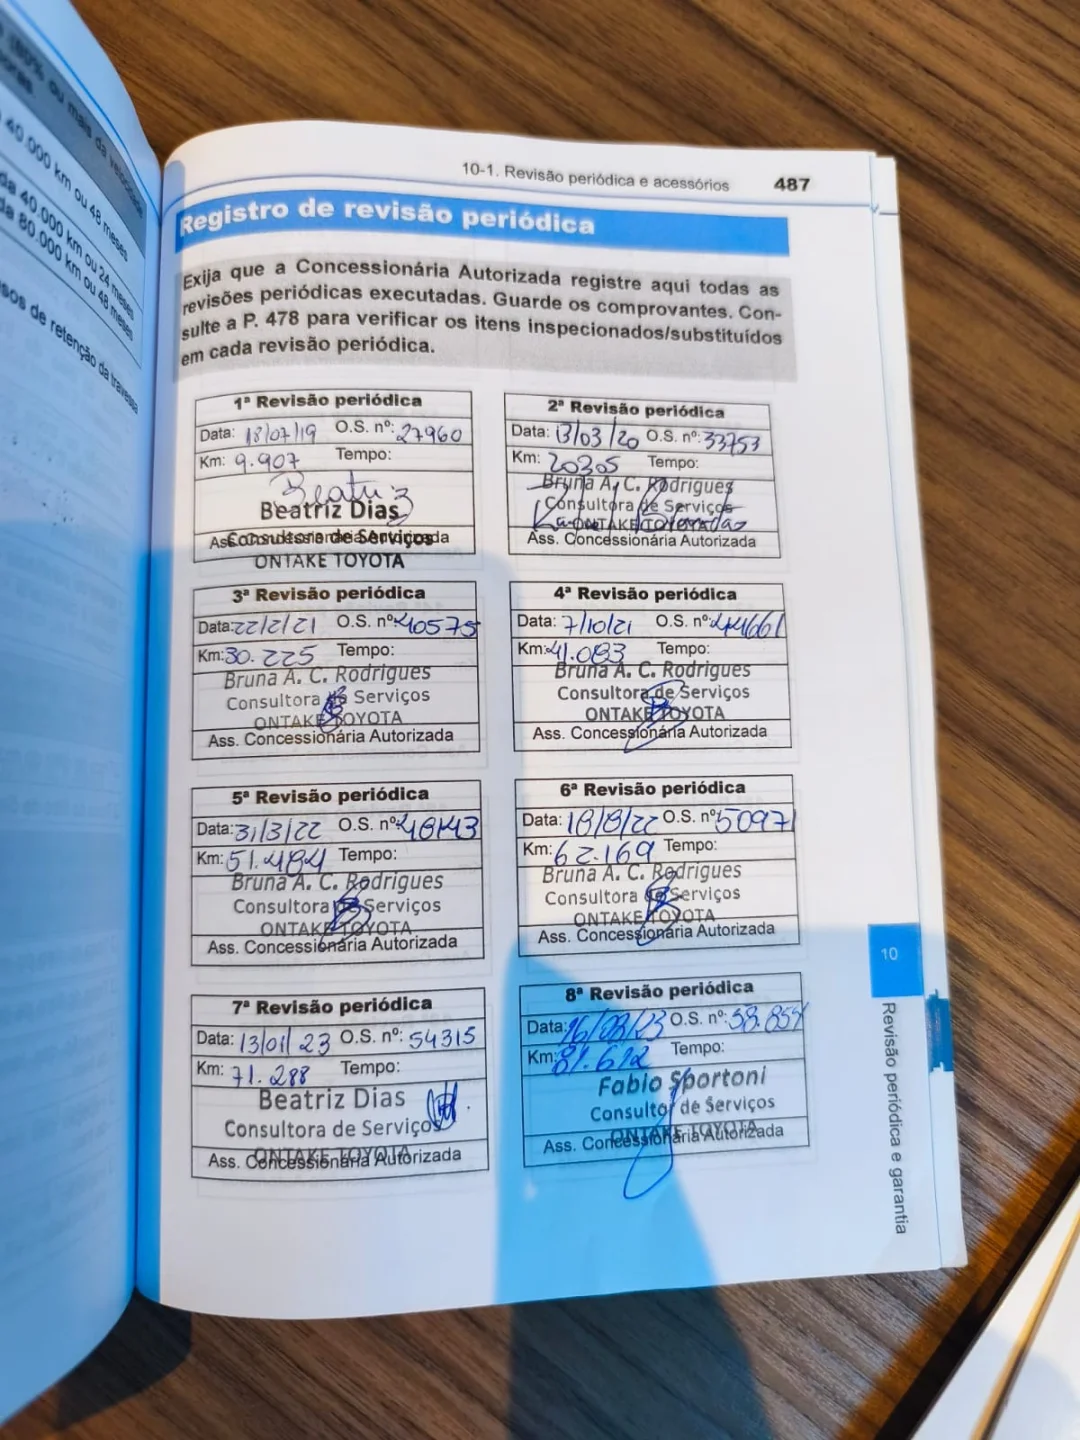 40.000 km ou 48 meses
40.000 km ou 24 meses
80.000 km ou 48 meses
de retenção da travessa
10-1. Revisão periódica e acessórios 487
Registro de revisão periódica
Exija que a Concessionária Autorizada registre aqui todas as
revisões periódicas executadas. Guarde os comprovantes. Con-
sulte a P. 478 para verificar os itens inspecionados/substituídos
em cada revisão periódica.
1ª Revisão periódica
Data: 18/07/19 O.S. nº: 27960
Km: 9.907 Tempo:
Beatriz
Beatriz Dias
Consultora de Serviços
Ass. Concessionária Autorizada
ONTAKE TOYOTA
2ª Revisão periódica
Data: 13/03/20 O.S. nº: 33753
Km: 20305 Tempo:
Bruna A. C. Rodrigues
Consultora de Serviços
ONTAKE TOYOTA
Ass. Concessionária Autorizada
3ª Revisão periódica
Data: 22/2/21 O.S. nº: 40575
Km: 30.225 Tempo:
Bruna A. C. Rodrigues
Consultora de Serviços
ONTAKE TOYOTA
Ass. Concessionária Autorizada
4ª Revisão periódica
Data: 7/10/21 O.S. nº: 44661
Km: 41.083 Tempo:
Bruna A. C. Rodrigues
Consultora de Serviços
ONTAKE TOYOTA
Ass. Concessionária Autorizada
5ª Revisão periódica
Data: 31/3/22 O.S. nº: 48143
Km: 51.484 Tempo:
Bruna A. C. Rodrigues
Consultora de Serviços
ONTAKE TOYOTA
Ass. Concessionária Autorizada
6ª Revisão periódica
Data: 18/8/22 O.S. nº: 50971
Km: 62.169 Tempo:
Bruna A. C. Rodrigues
Consultora de Serviços
ONTAKE TOYOTA
Ass. Concessionária Autorizada
7ª Revisão periódica
Data: 13/01/23 O.S. nº: 54315
Km: 71.288 Tempo:
Beatriz Dias
Consultora de Serviços
ONTAKE TOYOTA
Ass. Concessionária Autorizada
8ª Revisão periódica
Data: 16/08/23 O.S. nº: 58.854
Km: 81.612 Tempo:
Fabio Sportoni
Consultor de Serviços
ONTAKE TOYOTA
Ass. Concessionária Autorizada
10
Revisão periódica e garantia